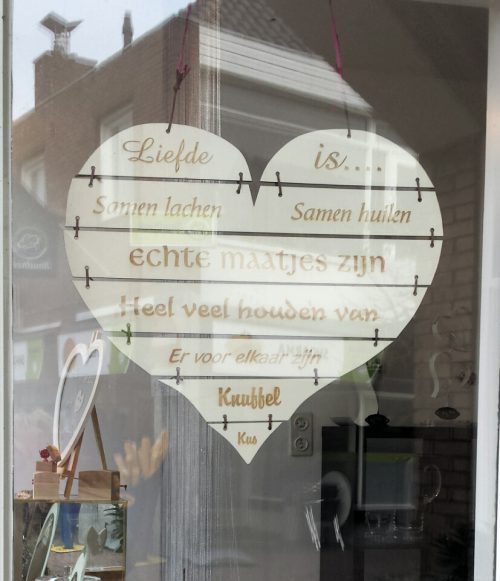 Liefde is....
Samen lachen Samen huilen
echte maatjes zijn
Heel veel houden van
Er voor elkaar zijn
Knuffel
Kus